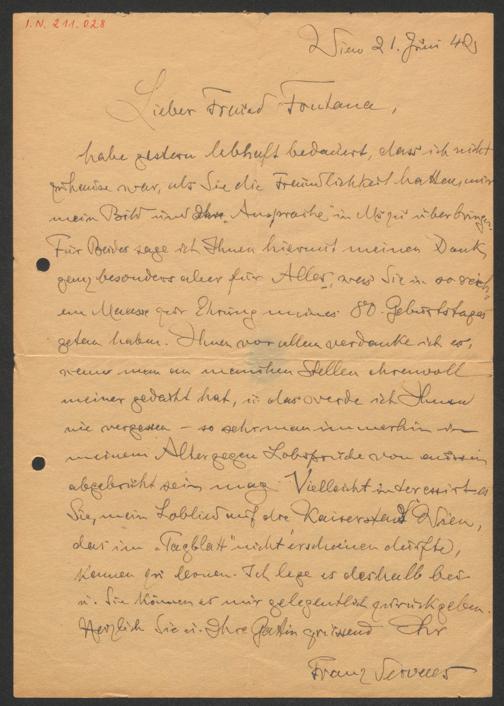 I.N. 211.028
Wien 21. Juni 42
Lieber Freund Fontana,
habe gestern lebhaft bedauert, dass ich nicht
zuhause war, als Sie die Freundlichkeit hatten, mir
mein Bild und Ihre „Ansprache" in überbringen.
Für Beides sage ich Ihnen hiermit meinen Dank,
ganz besonders aber für Alles, was Sie in so reich
em Masse zur Ehrung meines 80. Geburtstages
getan haben. Ihnen vor allem verdanke ich es,
wenn man an manchen Stellen ehrenvoll
meiner gedacht hat, u. das werde ich Ihnen
nie vergessen – so sehr man immerhin in
meinem Alter gegen Lobsprüche von aussen
abgebrüht sein mag. Vielleicht interessirt es
Sie, mein Loblied auf die Kaiserstadt Wien,
das im „Tagblatt" nicht erscheinen durfte,
kennen zu lernen. Ich lege es deshalb bei
u. Sie können es mir gelegentlich zurückgeben.
Herzlich Sie u. Ihre Gattin grüssend Ihr
Franz Servaes